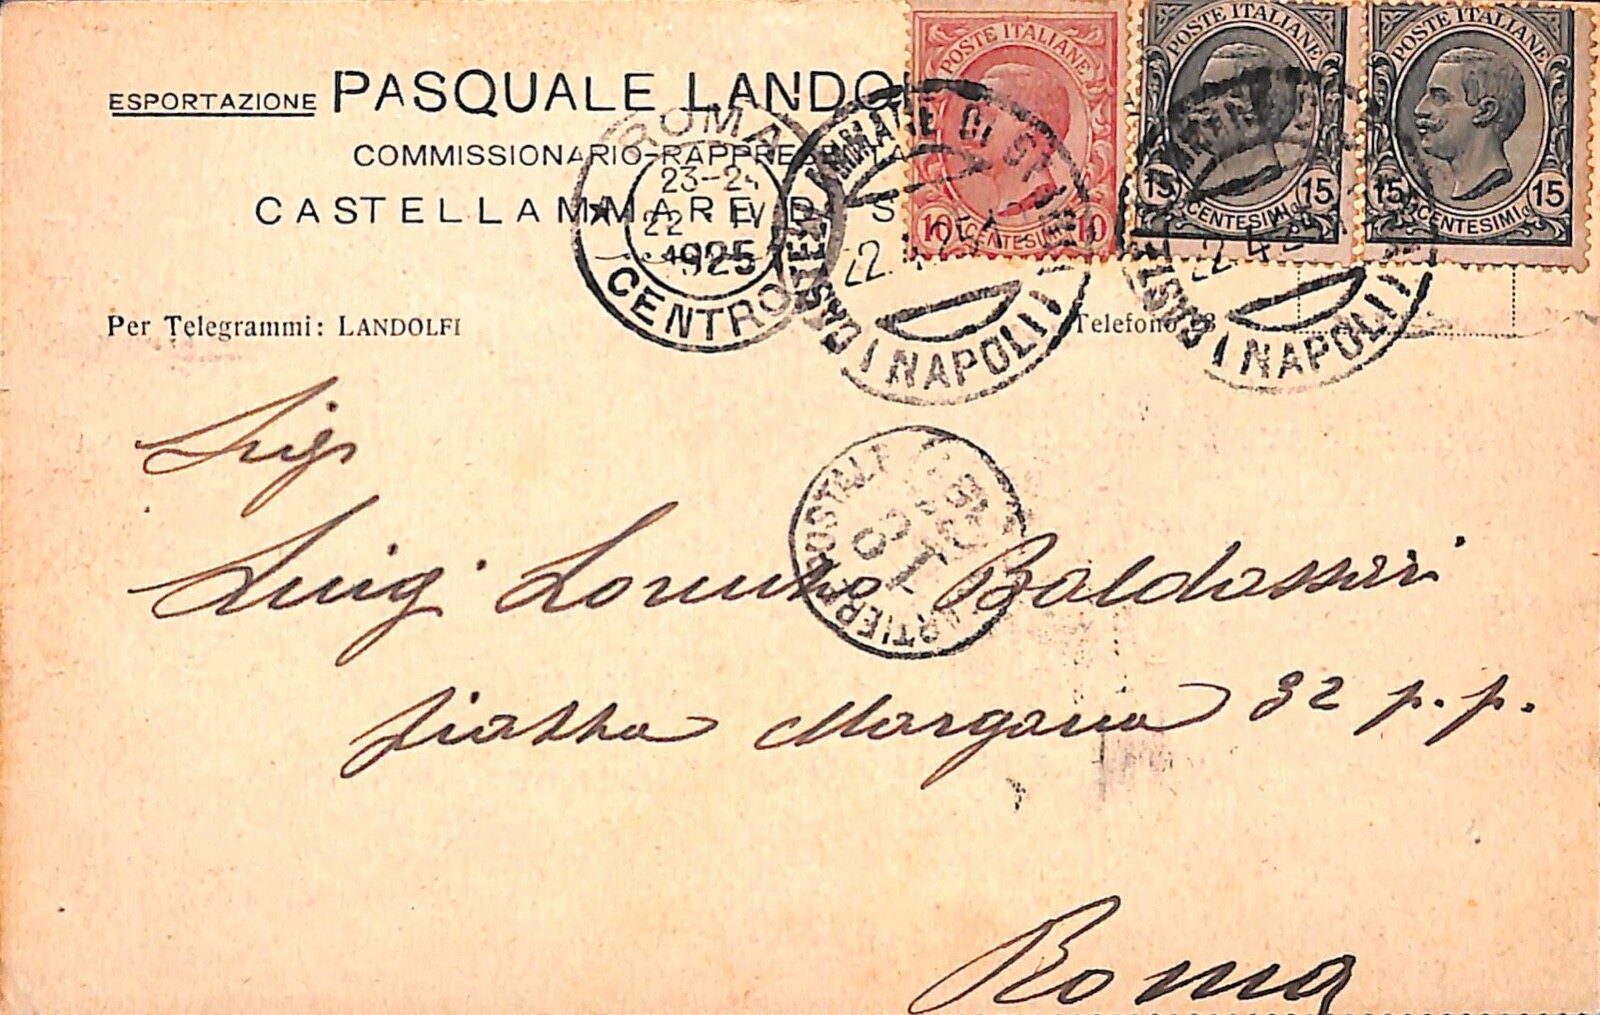 ESPORTAZIONE PASQUALE LANDO
COMMISSIONARIO-RAPPRES
CASTELLAMMARE DI S
Per Telegrammi: LANDOLFI
Telefono 28
POSTE ITALIANE
10 CENTESIMI 10
POSTE ITALIANE
15 CENTESIMI 15
POSTE ITALIANE
15 CENTESIMI 15
ROMA
23-24
22 IV
1925
CENTRO
CASTELLAMMARE DI STABIA
22.4.25
(NAPOLI)
22.4.25
(NAPOLI)
POSTALE
Sig
Luigi Lorenzo Baldassari
piazza Margana 32 p. p.
Roma